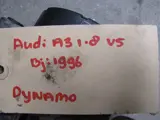 Audi A3 1.8 V5
Dj:1996
DYNAMO